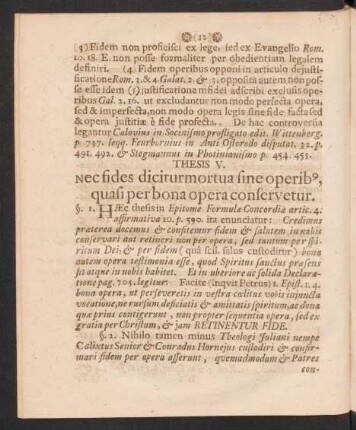 (12)
(3) Fidem non proficisci ex lege, sed ex Evangelio Rom.
10. 18. E. non posse formaliter per obedientiam legalem
definiri. (4) Fidem operibus opponi in articulo dejusti-
ficatione Rom. 3. & 4. Galat. 2. & 3. opposita autem non pos-
se esse idem (1) justificatione m fidei adscribi exclusis ope-
ribus Gal. 2. 16. ut excludantur non modo perfecta opera,
sed & imperfecta, non modo opera legis sine fide facta sed
& opera justitiæ è fide profecta. De hac controversia
legantur Calovius in Socinismo profligato edit. Wittenberg.
p. 737. seqq. Feurbornius in Anti Ostorodo disputat. 32. p.
491. 492. & Stegmannus in Photinianismo p. 454. 455.
THESIS V.
Nec fides dicitur mortua sine operibꝰ,
quasi per bona opera conservetur.
§. 1. HÆc thesis in Epitome Formulæ Concordiæ artic. 4.
affirmativa 10. p. 590. ita enunciatur: Credimus
præterea docemus & confitemur fidem & salutem in nobis
conservari aut retineri non per opera, sed tantum per spi-
ritum Dei, & per fidem (quâ scil. salus custoditur) bona
autem opera testimonia esse, quod Spiritus sanctus præsens
sit atque in nobis habitet. Et in uberiore ac solida Declara-
tione pag. 705. legitur: Facite (inqvit Petrus) 1. Epist. 1. 4.
bona opera, ut perseveretis in vestra cælitus vobis injuncta
vocatione, ne rursum deficiatis & amittatis spiritum, ac dona
quæ prius contigerunt, non propter sequentia opera, sed ex
gratia per Christum, & jam RETINENTUR FIDE.
§. 2. Nihilo tamen minus Theologi Juliani nempe
Calixtus Senior & Conradus Hornejus custodiri & confir-
mari fidem per opera asserunt, quemadmodum & Patres
con-